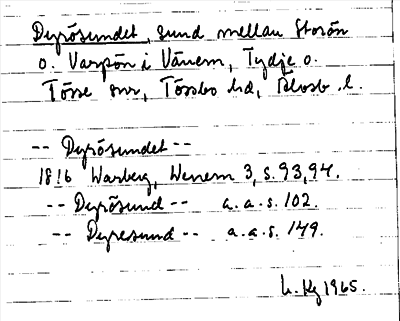 Dyrösundet, sund mellan Storön
o. Varpön i Vänern, Tydje o.
Tösse snr, Tössbo hd, Älvsb. l.
-- Dyrösundet --
1816 Warberg, Wenern 3, s. 93, 94.
-- Dyrösund -- a.a.s. 102.
-- Dyresund -- a.a.s. 149.
1965.